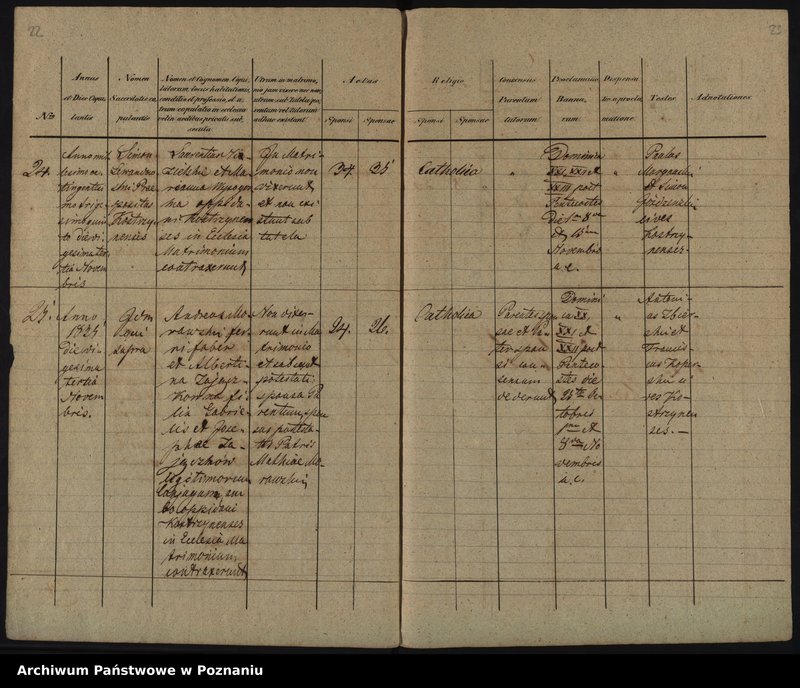 22
23
Nro
Annus
et Dies Copu
lantis
Nomen
Sacerdotis co
pulantis
Nomen et Cognomen Copu
latorum, locus habitationis,
conditio et professio, et u
trum copulatio in ecclesia
velin aedibus privatis sub
secuta
Utrum in matrimo,
nio jam vixere nec non
utrum sub tutela pa
rentum vel tutorum
adhuc existant
Aetas
Sponsi
Sponsae
Religio
Sponsi
Sponsae
Consensus
Parentum
tutorum
Proclamatio
Banno,
rum
Dispensa
tio a procla
matione
Testes
Adnotationes
24.
Anno mil
lesimo oc
tingentesi
mo trige
simo quin
to die vi,
gesima ter
tia Novem
bris
Simon
Prae
positus
Kostrzy
nensis
Laurentius
et Ma
rianna
ma oppida
ni Kostrzynen
ses in Ecclesia
Matrimonium
contraxerunt
In Matri-
monio non
vixerunt
et non exi
stunt sub
tutela
34
25
Catholica
"
"
Dominica
XXI, XXII et
XXIII post
Pentecostes
die 1ma 8va
et 15ta
Novembris
a. c.
"
et Simon
cives
Kostrzy-
nenses-
25.
Anno
1835
die vi-
gesima
tertia
Novem
bris.
Idem
qui
supra
Andreas Mo-
rawski fer
ri faber
et Alberti-
na Zającz-
kowna fi-
lia Gabrie-
lis et Jose-
phae Za-
jączków
legitimorum
conjugum, am
bo oppidani
Kostrzynenses
in Ecclesia Ma
trimonium
contraxerunt
Non vixe-
runt in Ma
trimonio
et subsunt
potestati
sponsa Pa
rentum, spon
sus potesta-
tis Patris
Mathiae Mo-
rawski
24.
26.
Catholica
"
Parentes spon
sae et Pa-
ter spon
si con
sensum
dederunt
Domini
ca XX,
XXI et
XXII post
Penteco-
stes die
25ta Oc
tobris
1ma et
8va No
vembris
a. c.
"
Antoni-
us Zbier-
ski et
Francis-
cus Koper
ski ci
ves Ko-
strzynen
ses. —
Archiwum Państwowe w Poznaniu